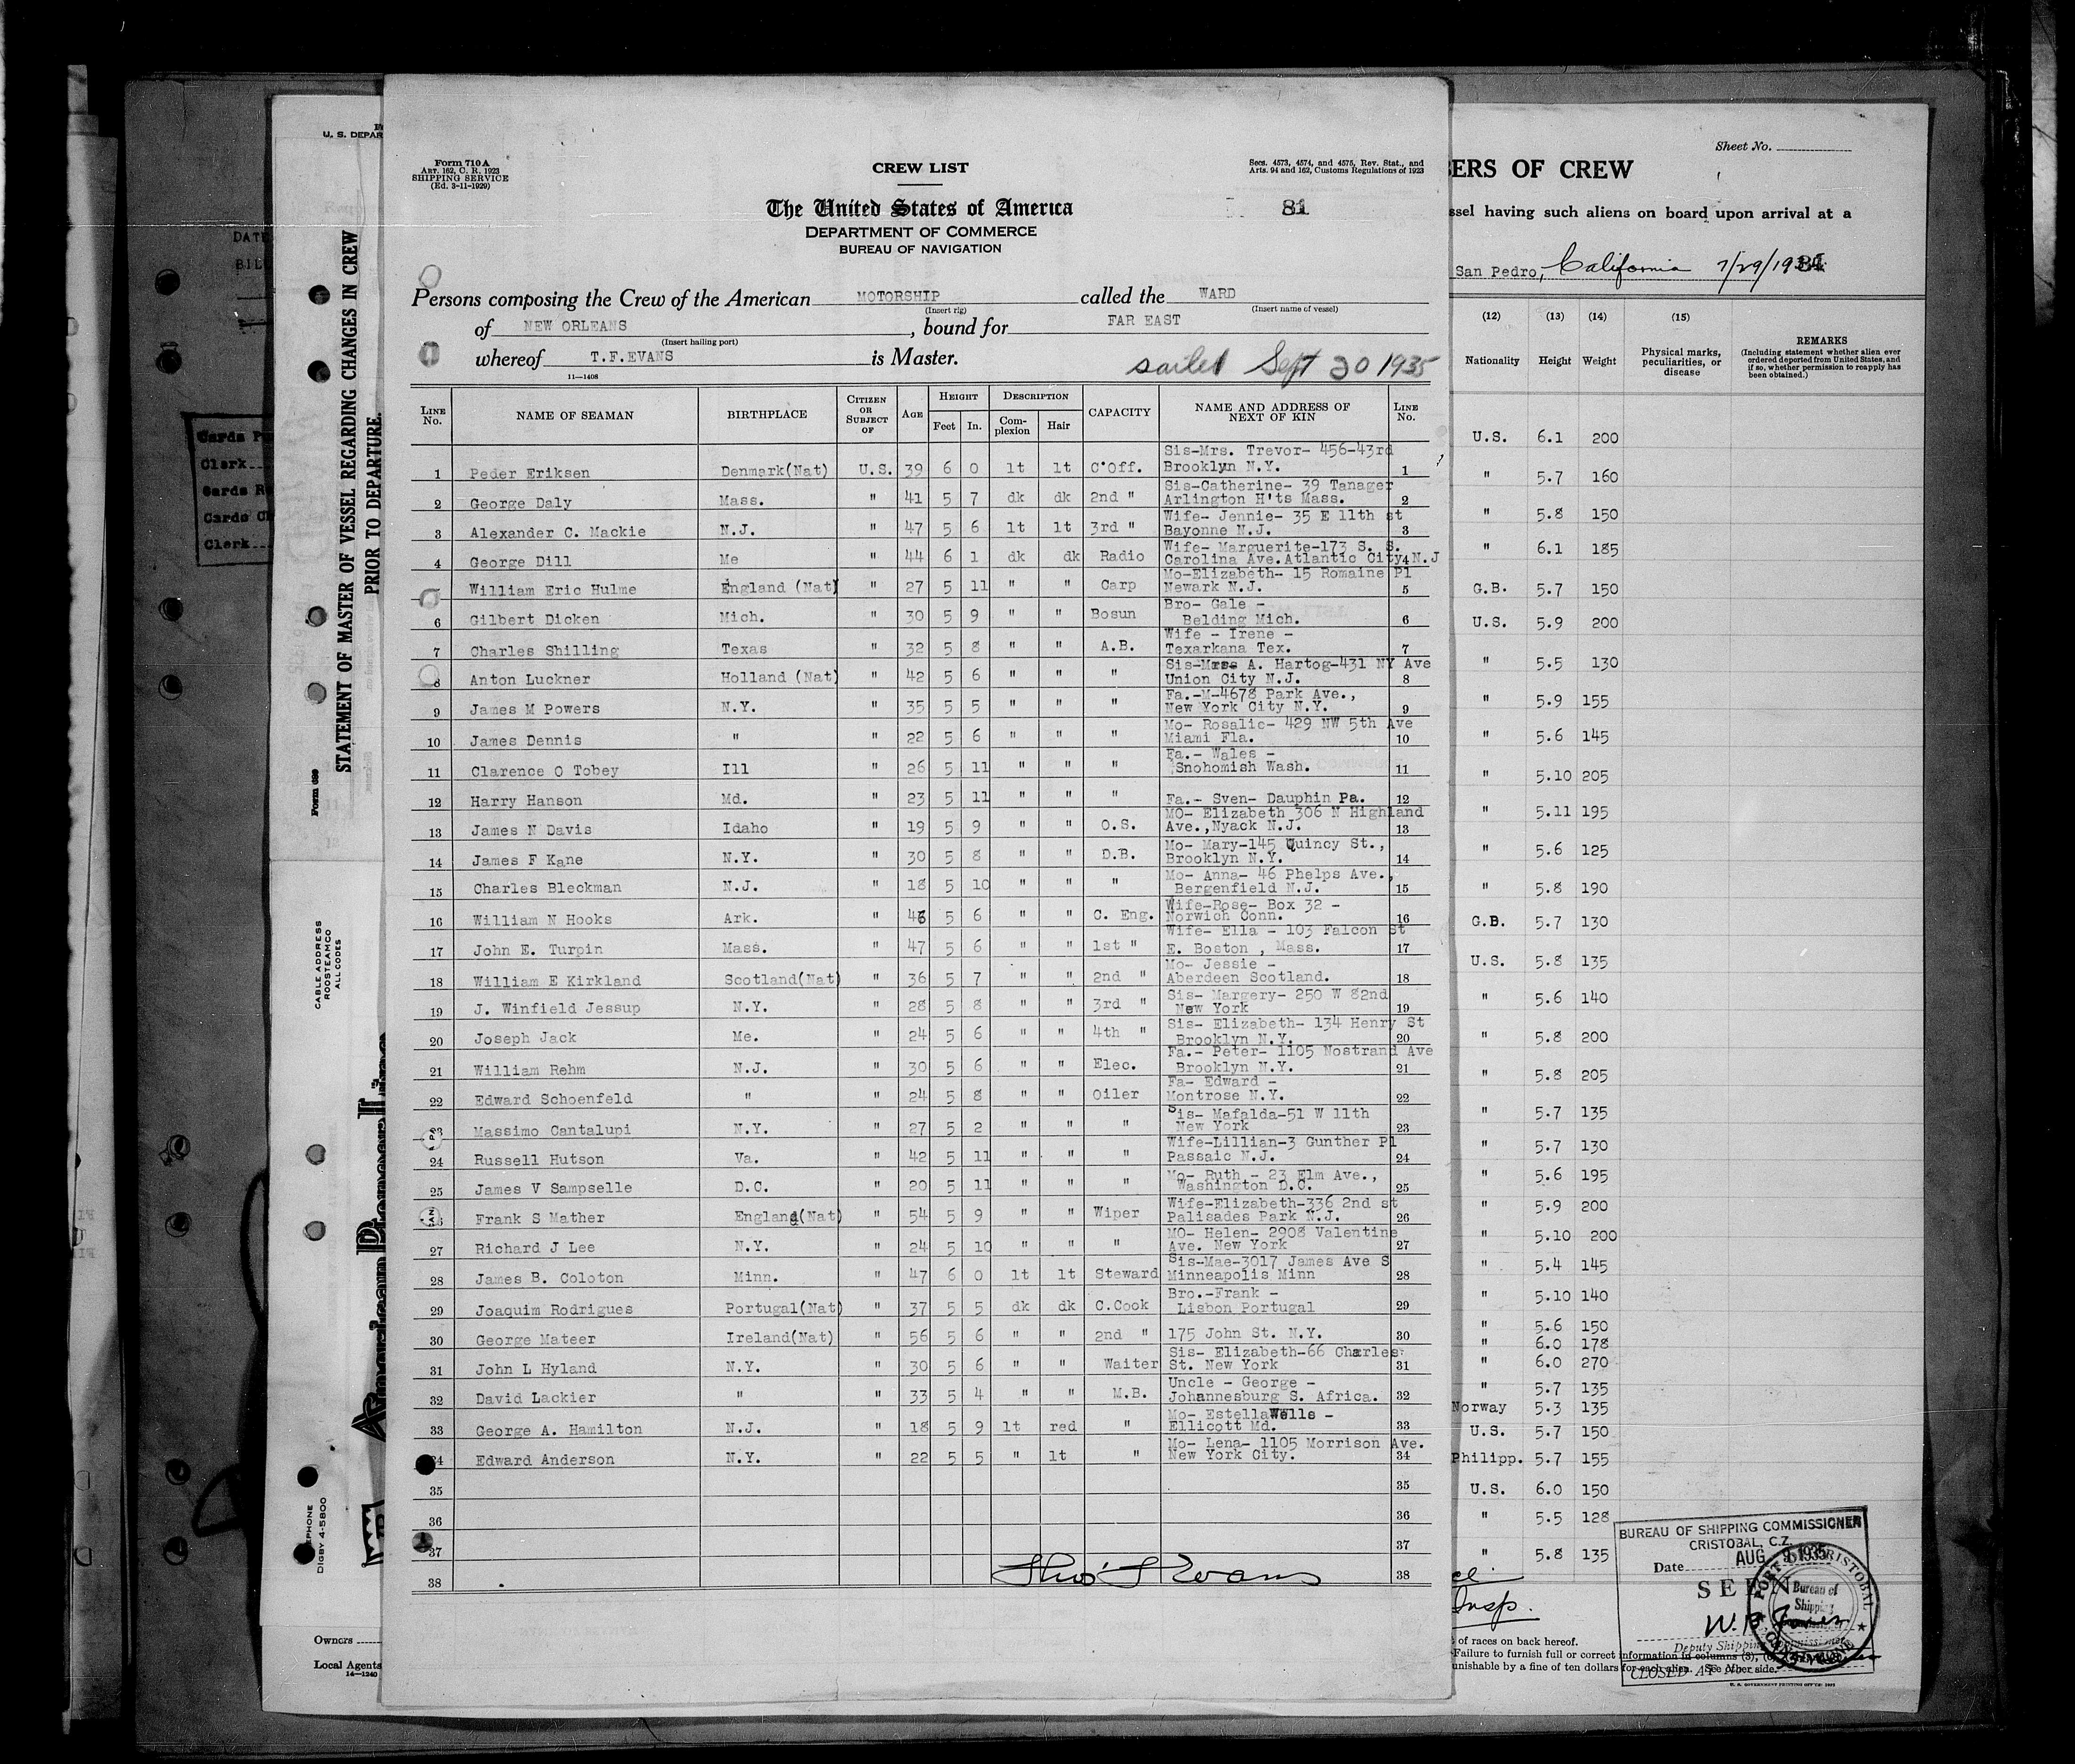 Form 710 A
ART. 162, C. R. 1923
SHIPPING SERVICE
(Ed. 3-11-1929)
CREW LIST
Secs. 4573, 4574, and 4575, Rev. Stat., and
Arts. 94 and 162, Customs Regulations of 1923
The United States of America
81
DEPARTMENT OF COMMERCE
BUREAU OF NAVIGATION
Persons composing the Crew of the American MOTORSHIP called the WARD
(Insert rig) (Insert name of vessel)
of NEW ORLEANS, bound for FAR EAST
(Insert hailing port)
whereof T.F.EVANS is Master.
11—1408
sailed Sept 30 1935
LINE No. NAME OF SEAMAN BIRTHPLACE CITIZEN OR SUBJECT OF AGE HEIGHT Feet In. DESCRIPTION Complexion Hair CAPACITY NAME AND ADDRESS OF NEXT OF KIN LINE No.
Sis-Mrs. Trevor- 456-43rd
1 Peder Eriksen Denmark(Nat) U.S. 39 6 0 lt lt C'Off. Brooklyn N.Y. 1
Sis-Catherine- 39 Tanager
2 George Daly Mass. " 41 5 7 dk dk 2nd " Arlington H'ts Mass. 2
Wife- Jennie- 35 E 11th st
3 Alexander C. Mackie N.J. " 47 5 6 lt lt 3rd " Bayonne N.J. 3
Wife- Marguerite-173 S. S.
4 George Dill Me " 44 6 1 dk dk Radio Carolina Ave.Atlantic City N.J 4
Mo-Elizabeth- 15 Romaine Pl
William Eric Hulme England (Nat) " 27 5 11 " " Carp Newark N.J. 5
Bro- Gale -
6 Gilbert Dicken Mich. " 30 5 9 " " Bosun Belding Mich. 6
Wife - Irene -
7 Charles Shilling Texas " 32 5 8 " " A.B. Texarkana Tex. 7
Sis-Mrs. A. Hartog-431 NY Ave
8 Anton Luckner Holland (Nat) " 42 5 6 " " " Union City N.J. 8
Fa.-M-4678 Park Ave.,
9 James M Powers N.Y. " 35 5 5 " " " New York City N.Y. 9
Mo- Rosalie- 429 NW 5th Ave
10 James Dennis " " 22 5 6 " " " Miami Fla. 10
Fa.- Wales -
11 Clarence O Tobey Ill " 26 5 11 " " " Snohomish Wash. 11
12 Harry Hanson Md. " 23 5 11 " " " Fa.- Sven- Dauphin Pa. 12
MO- Elizabeth 306 N Highland
13 James N Davis Idaho " 19 5 9 " " O.S. Ave.,Nyack N.J. 13
Mo- Mary-145 Quincy St.,
14 James F Kane N.Y. " 30 5 8 " " D.B. Brooklyn N.Y. 14
Mo- Anna- 46 Phelps Ave.,
15 Charles Bleckman N.J. " 18 5 10 " " " Bergenfield N.J. 15
Wife-Rose- Box 32 -
16 William N Hooks Ark. " 5 6 " " C. Eng. Norwich Conn. 16
Wife- Ella - 103 Falcon st
17 John E. Turpin Mass. " 47 5 6 " " 1st " E. Boston , Mass. 17
Mo- Jessie -
18 William E Kirkland Scotland(Nat) " 36 5 7 " " 2nd " Aberdeen Scotland. 18
Sis- Margery- 250 W 82nd
19 J. Winfield Jessup N.Y. " 28 5 8 " " 3rd " New York 19
Sis- Elizabeth- 134 Henry St
20 Joseph Jack Me. " 24 5 6 " " 4th " Brooklyn N.Y. 20
Fa.- Peter- 1105 Nostrand Ave
21 William Rehm N.J. " 30 5 6 " " Elec. Brooklyn N.Y. 21
Fa- Edward -
22 Edward Schoenfeld " " 24 5 8 " " Oiler Montrose N.Y. 22
Sis- Mafalda-51 W 11th
23 Massimo Cantalupi N.Y. " 27 5 2 " " " New York 23
Wife-Lillian-3 Gunther Pl
24 Russell Hutson Va. " 42 5 11 " " " Passaic N.J. 24
Mo- Ruth - 23 Elm Ave.,
25 James V Sampselle D.C. " 20 5 11 " " " Washington D.C. 25
Wife-Elizabeth-336 2nd st
Frank S Mather England(Nat) " 54 5 9 " " Wiper Palisades Park N.J. 26
MO- Helen- 2908 Valentine
27 Richard J Lee N.Y. " 24 5 10 " " " Ave. New York 27
Sis-Mae-3017 James Ave S
28 James B. Coloton Minn. " 47 6 0 lt lt Steward Minneapolis Minn 28
Bro.-Frank -
29 Joaquim Rodrigues Portugal(Nat) " 37 5 5 dk dk C.Cook Lisbon Portugal 29
30 George Mateer Ireland(Nat) " 56 5 6 " " 2nd " 175 John St. N.Y. 30
Sis- Elizabeth-66 Charles
31 John L Hyland N.Y. " 30 5 6 " " Waiter St. New York 31
Uncle - George -
32 David Lackier " " 33 5 4 " " M.B. Johannesburg S. Africa. 32
Mo- Estella Wells -
33 George A. Hamilton N.J. " 18 5 9 lt red " Ellicott Md. 33
Mo- Lena- 1105 Morrison Ave.
34 Edward Anderson N.Y. " 22 5 5 " lt " New York City. 34
35 35
36 36
37 37
38 Thos F Evans 38
U. S. DEPAR
STATEMENT OF MASTER OF VESSEL REGARDING CHANGES IN CREW
PRIOR TO DEPARTURE.
Form 689
CABLE ADDRESS
ROOSTEAMCO
ALL CODES
American Pioneer Line
DIGBY 4-5800
Owners
Local Agents
14—1240
DATE
Cards
Clerk
Cards
Cards
Clerk
Sheet No.
BERS OF CREW
ssel having such aliens on board upon arrival at a
San Pedro, California 7/29/19
(12) (13) (14) (15)
Nationality Height Weight Physical marks, peculiarities, or disease REMARKS
(Including statement whether alien ever
ordered deported from United States, and
if so, whether permission to reapply has
been obtained.)
U.S. 6.1 200
" 5.7 160
" 5.8 150
" 6.1 185
G.B. 5.7 150
U.S. 5.9 200
" 5.5 130
" 5.9 155
" 5.6 145
" 5.10 205
" 5.11 195
" 5.6 125
" 5.8 190
G.B. 5.7 130
U.S. 5.8 135
" 5.6 140
" 5.8 200
" 5.8 205
" 5.7 135
" 5.7 130
" 5.6 195
" 5.9 200
" 5.10 200
" 5.4 145
" 5.10 140
" 5.6 150
" 6.0 178
" 6.0 270
" 5.7 135
Norway 5.3 135
U.S. 5.7 150
Philipp. 5.7 155
U.S. 6.0 150
" 5.5 128
" 5.8 135
Insp.
BUREAU OF SHIPPING COMMISSIONER
CRISTOBAL, C.Z.
Date AUG 1935
SEEN
Bureau of
Shipping
Deputy Shipping Commissioner
of races on back hereof.
Failure to furnish full or correct information in columns (3),
unishable by a fine of ten dollars for each alien. See other side.
U. S. GOVERNMENT PRINTING OFFICE